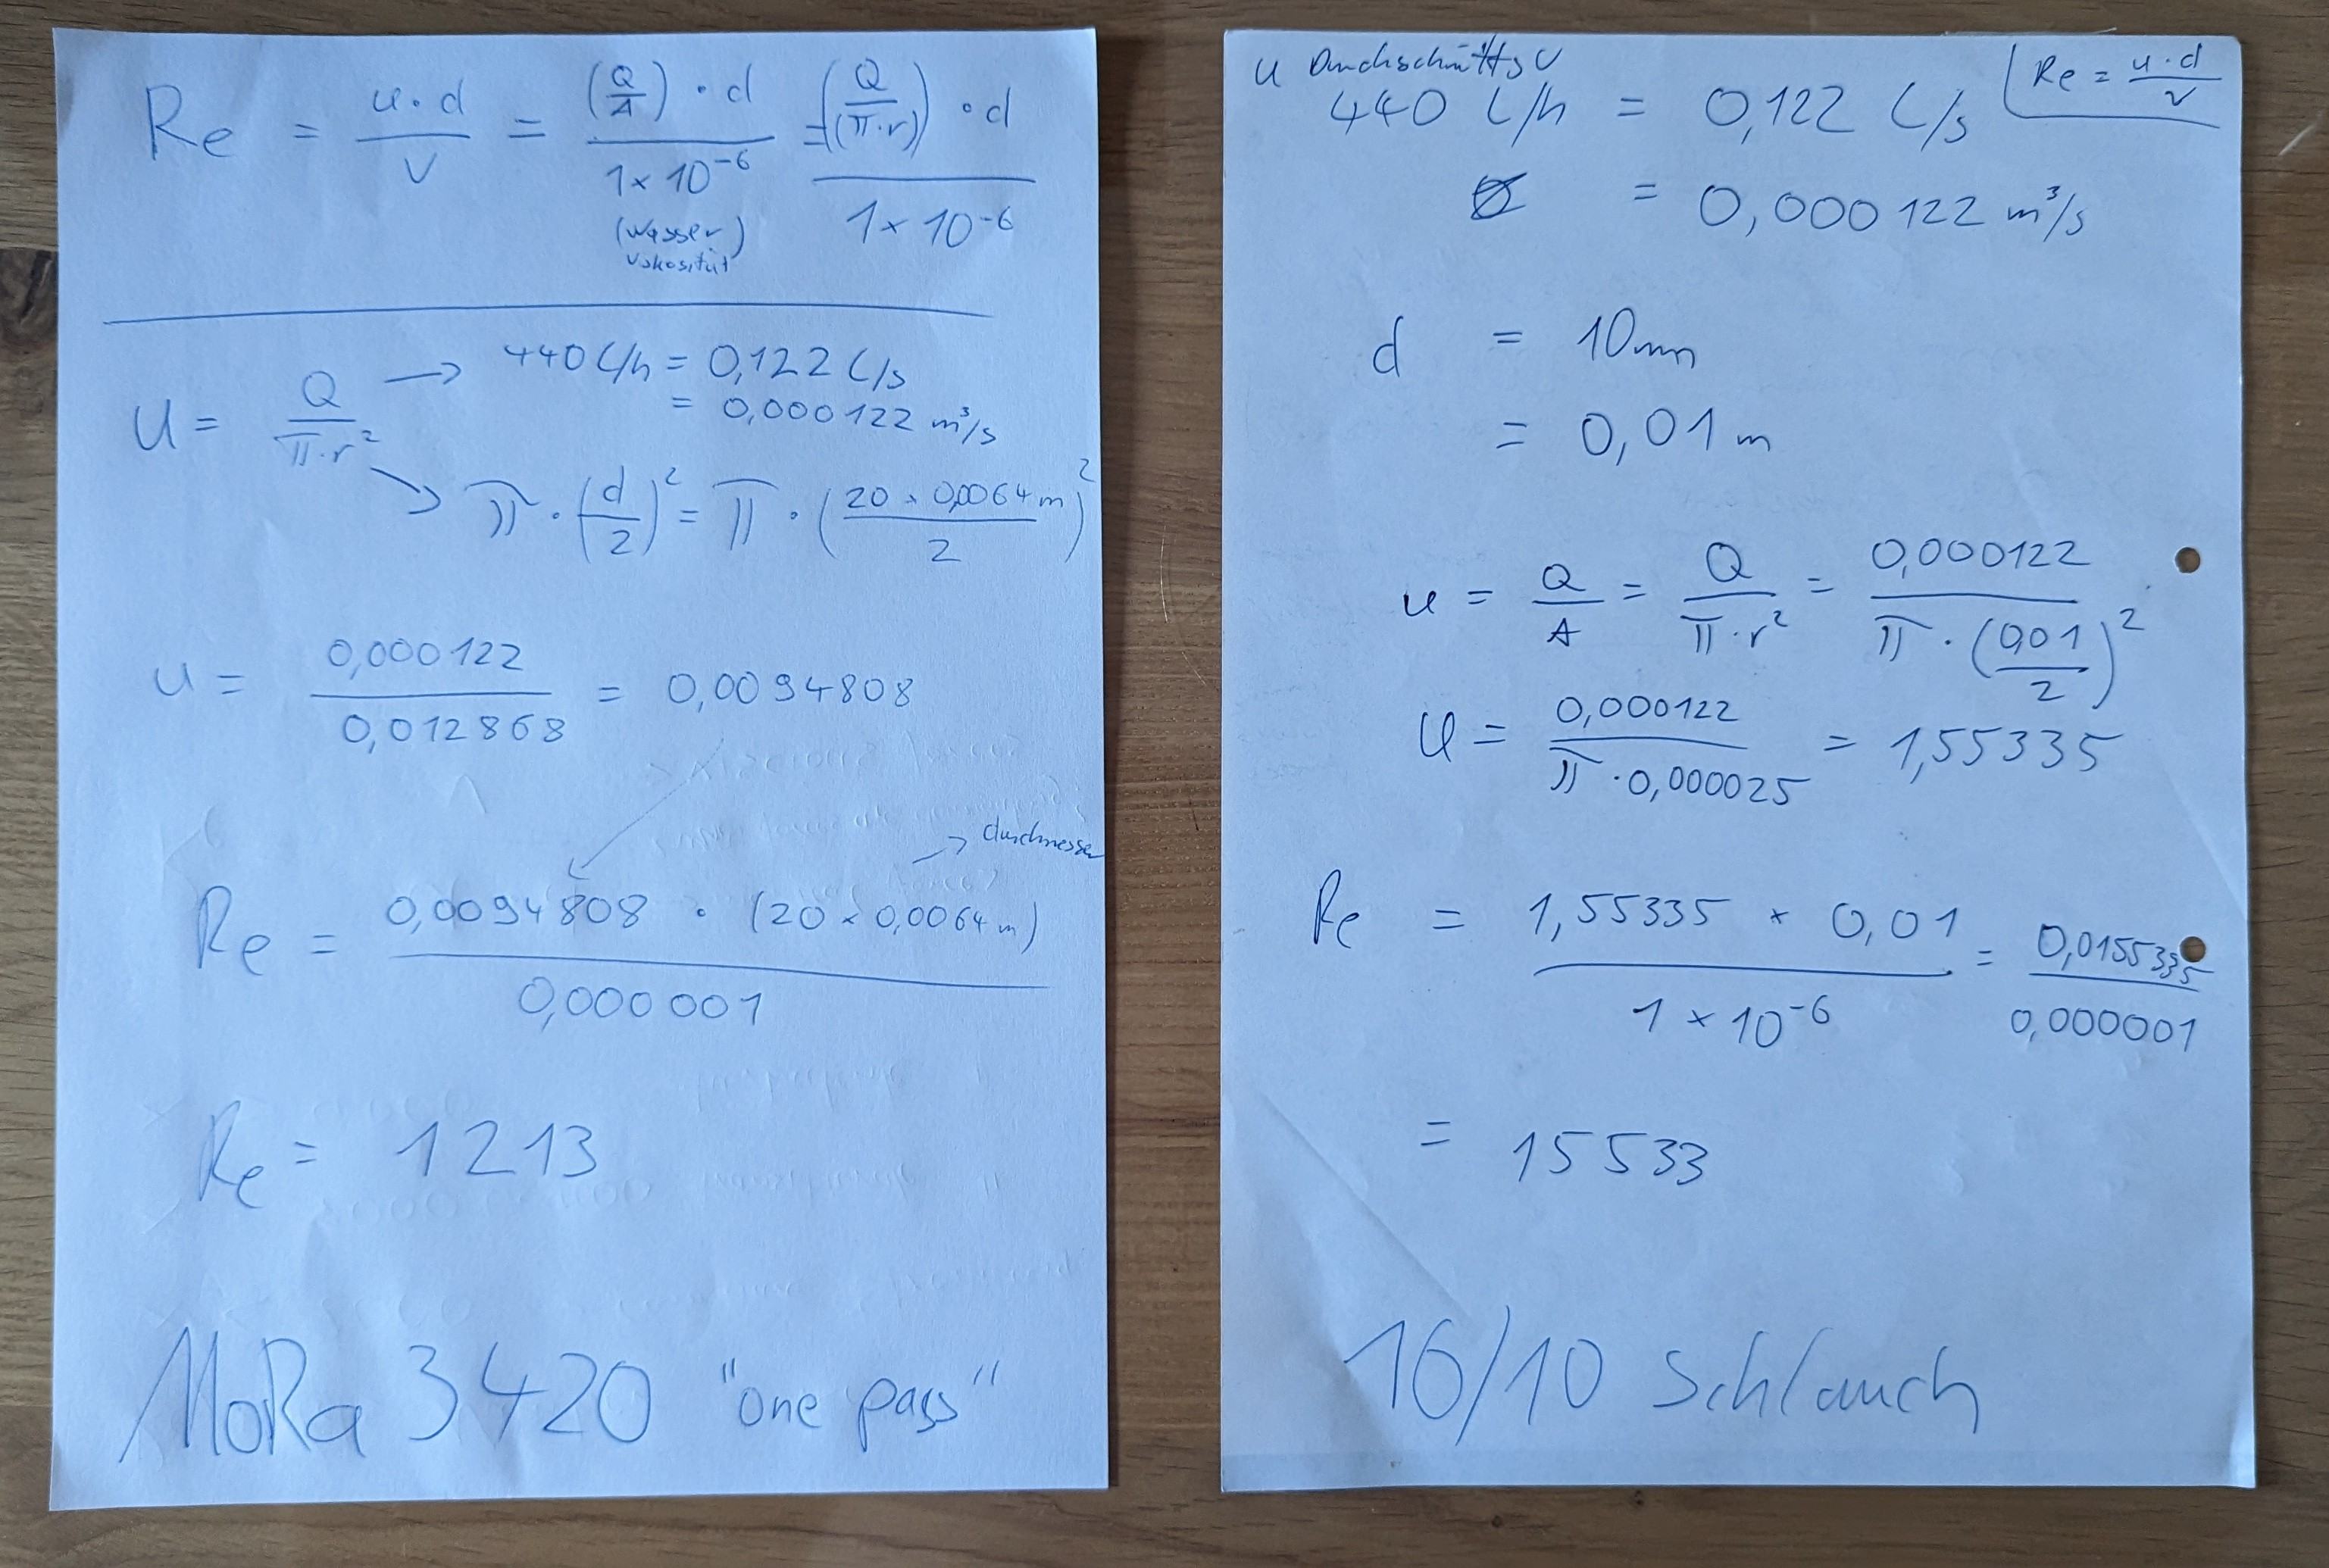 Re = u·d / ν = (Q/A) · d / 1×10⁻⁶ = (Q/(π·r)) · d / 1×10⁻⁶
(Wasser)
Viskosität
u = Q / π·r² → 440 l/h = 0,122 l/s
= 0,000122 m³/s
→ π · (d/2)² = π · (20 × 0,0064 m / 2)²
u = 0,000122 / 0,012868 = 0,0094808
→ durchmesser
Re = 0,0094808 · (20 × 0,0064 m) / 0,000001
Re = 1213
MoRa 3 420 "one pass"
u Durchschnitts v
Re = u·d / ν
440 l/h = 0,122 l/s
= 0,000122 m³/s
d = 10mm
= 0,01 m
u = Q / A = Q / π·r² = 0,000122 / π · (0,01 / 2)²
u = 0,000122 / π · 0,000025 = 1,55335
Re = 1,55335 × 0,01 / 1 × 10⁻⁶ = 0,0155335 / 0,000001
= 15533
16/10 Schlauch